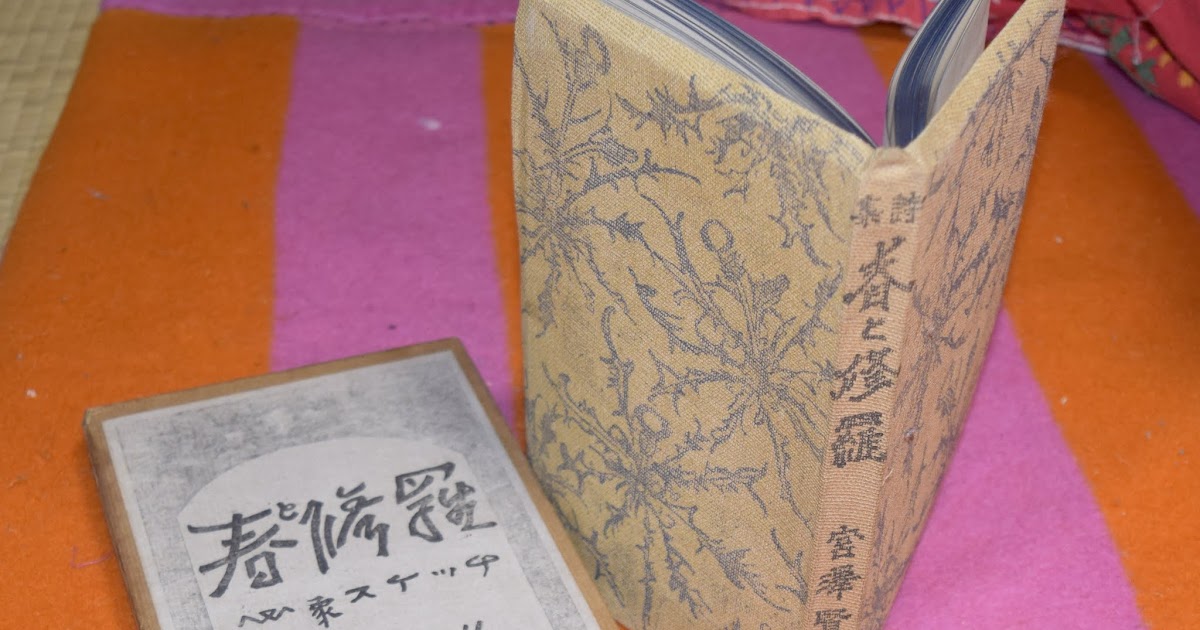 春と修羅
心象スケッチ
詩集
春と修羅
宮澤賢